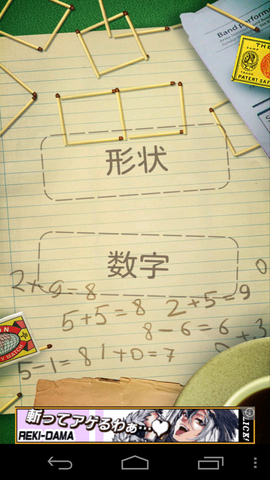 Band Performa
THE
PATENT SAF
形状
数字
2+9=8
5+5=8
2+5=9
8-6=6
5-1=8
1+0=7
斬ってアゲるわぁ…
REKI-DAMA
CLICK!